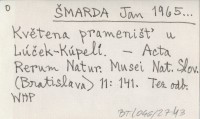 D
ŠMARDA Jan 1965...
Květena pramenišť u
Lúček-Kúpeľ. — Acta
Rerum Natur. Musei Nat. Slov.
(Bratislava) 11: 141. Tez odb.
WHP
BT/066/2743